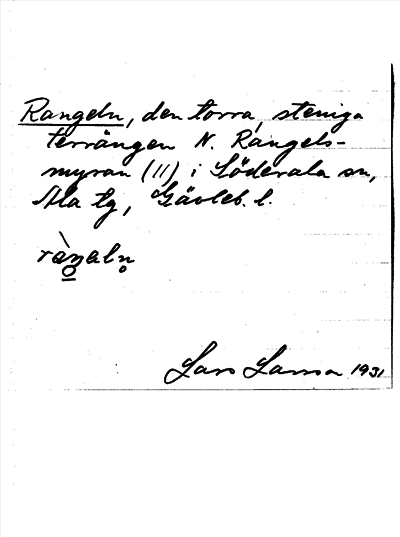 Rangeln, den torra, steniga
terrängen N. Rangels-
myran (11) i Söderala sn,
Ala tg, Gävleb. l.
Lars Larsson 1931